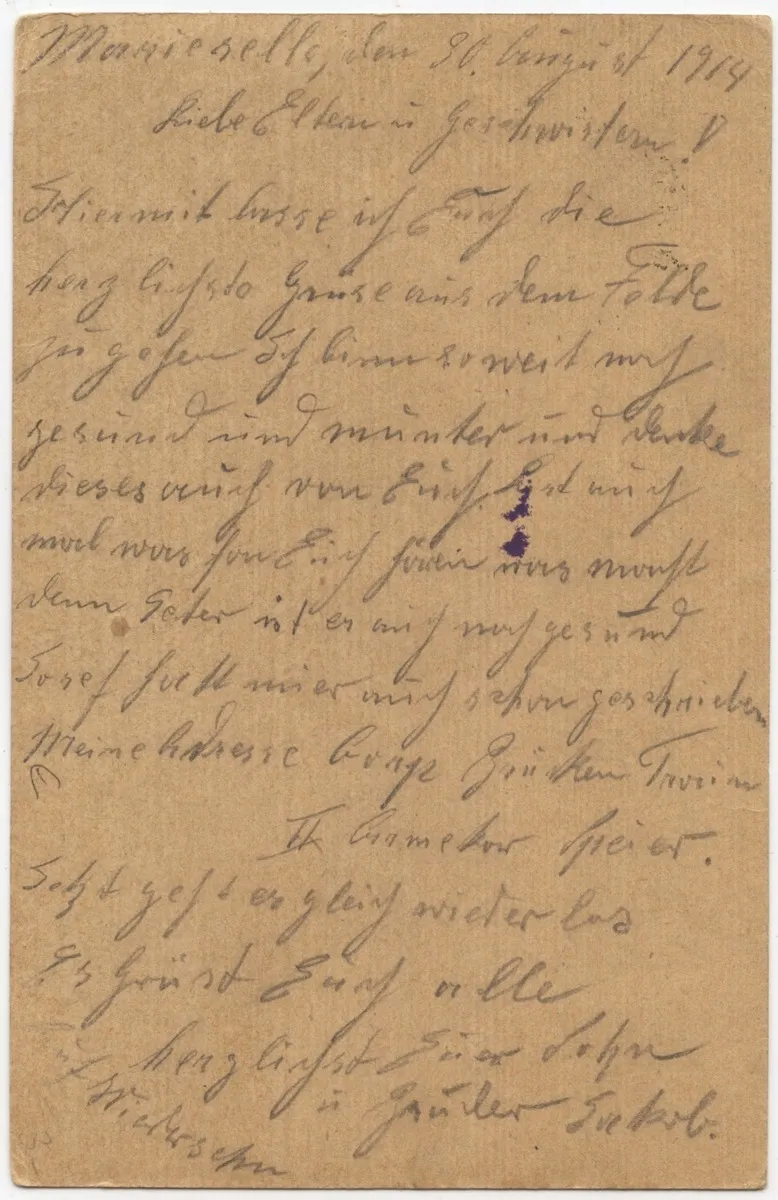 Marieselle, den 30. August 1914
Liebe Eltern u Geschwistern!
Hiermit lasse ich Euch die
herzlichste Grüse aus dem Felde
zu gehen Ich binn soweit noch
gesund und munter und denke
dieses auch von Euch. Last auch
mal was fon Euch hören was macht
denn Peter ist er auch noch gesund
Josef hatt mier auch schon geschrieben
Meine Adresse Corps Brücken Train
II Armekor Speier.
Jetzt geht er gleich wieder los
Es Grüst Euch alle
herzlichst Euer Sohn
u Bruder Jakob.
auf Wiedersehn